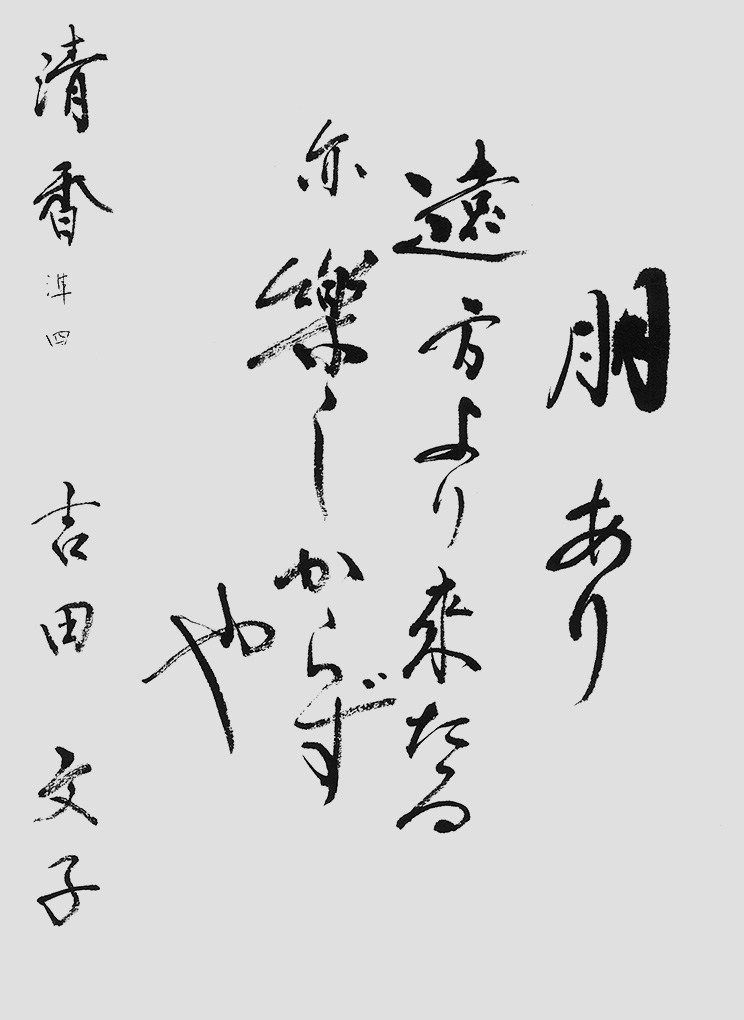 朋あり
遠方より来たる
亦樂しからず
や
清香 準四 吉田 文子